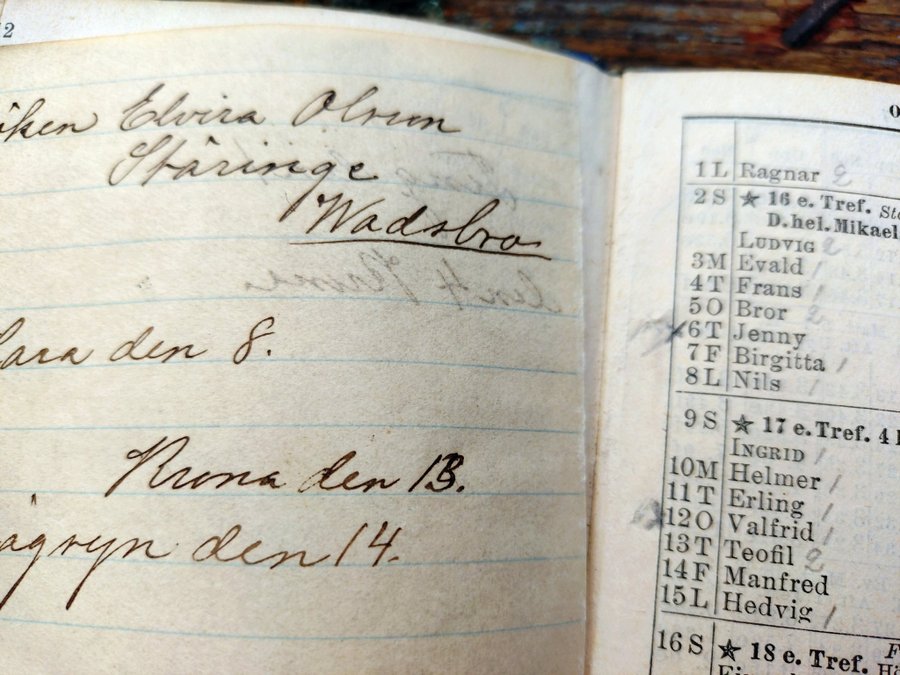 2
iken Elvira Olsson
Stäringe
Wadsbro
den 8.
Krona den 13.
ågryn den 14.
O
1 L Ragnar 2
2 S ★ 16 e. Tref.
D. hel. Mikael
LUDVIG 2
3 M Evald /
4 T Frans /
5 O Bror 2
6 T Jenny
7 F Birgitta /
8 L Nils /
9 S ★ 17 e. Tref. 4
INGRID /
10 M Helmer /
11 T Erling /
12 O Valfrid /
13 T Teofil 2
14 F Manfred
15 L Hedvig /
16 S ★ 18 e. Tref.